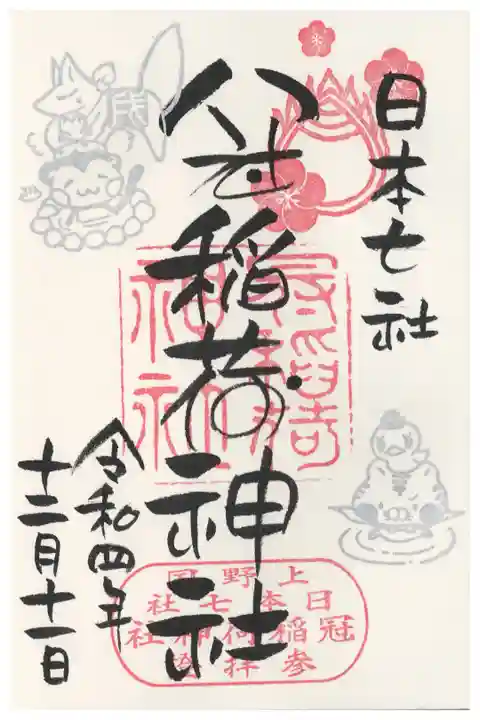 日本七社
八社稲荷神社
令和四年
十二月十一日
上野国
日本七社
冠稲荷神社
参拝